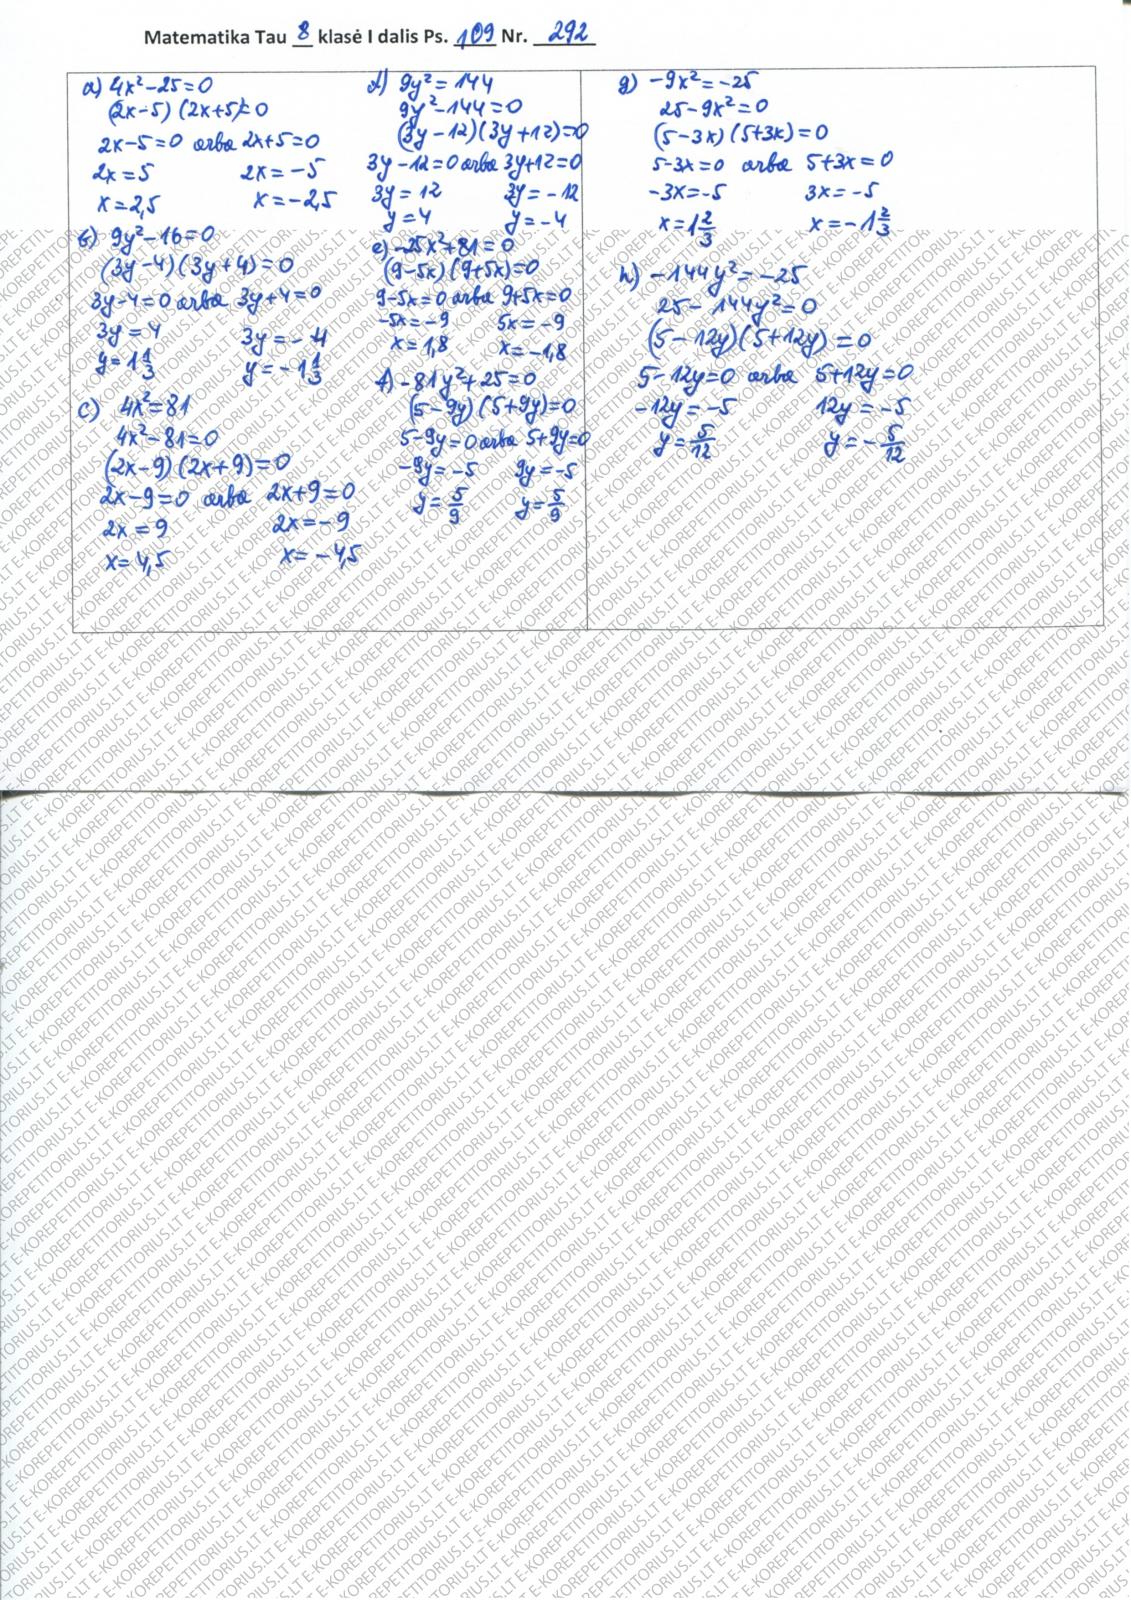 Matematika Tau 8 klasė I dalis Ps. 109 Nr. 292
a) 4x²-25=0
(2x-5)(2x+5)=0
2x-5=0 arba 2x+5=0
2x=5 2x=-5
x=2,5 x=-2,5
b) 9y²-16=0
(3y-4)(3y+4)=0
3y-4=0 arba 3y+4=0
3y=4 3y=-4
y=1 1/3 y=-1 1/3
c) 4x²=81
4x²-81=0
(2x-9)(2x+9)=0
2x-9=0 arba 2x+9=0
2x=9 2x=-9
x=4,5 x=-4,5
d) 9y²=144
9y²-144=0
(3y-12)(3y+12)=0
3y-12=0 arba 3y+12=0
3y=12 3y=-12
y=4 y=-4
e) -25x²+81=0
(9-5x)(9+5x)=0
9-5x=0 arba 9+5x=0
-5x=-9 5x=-9
x=1,8 x=-1,8
f) -81y²+25=0
(5-9y)(5+9y)=0
5-9y=0 arba 5+9y=0
-9y=-5 9y=-5
y=5/9 y=5/9
g) -9x²=-25
25-9x²=0
(5-3x)(5+3x)=0
5-3x=0 arba 5+3x=0
-3x=-5 3x=-5
x=1 2/3 x=-1 2/3
h) -144y²=-25
25-144y²=0
(5-12y)(5+12y)=0
5-12y=0 arba 5+12y=0
-12y=-5 12y=-5
y=5/12 y=-5/12
E-KOREPETITORIUS.LT